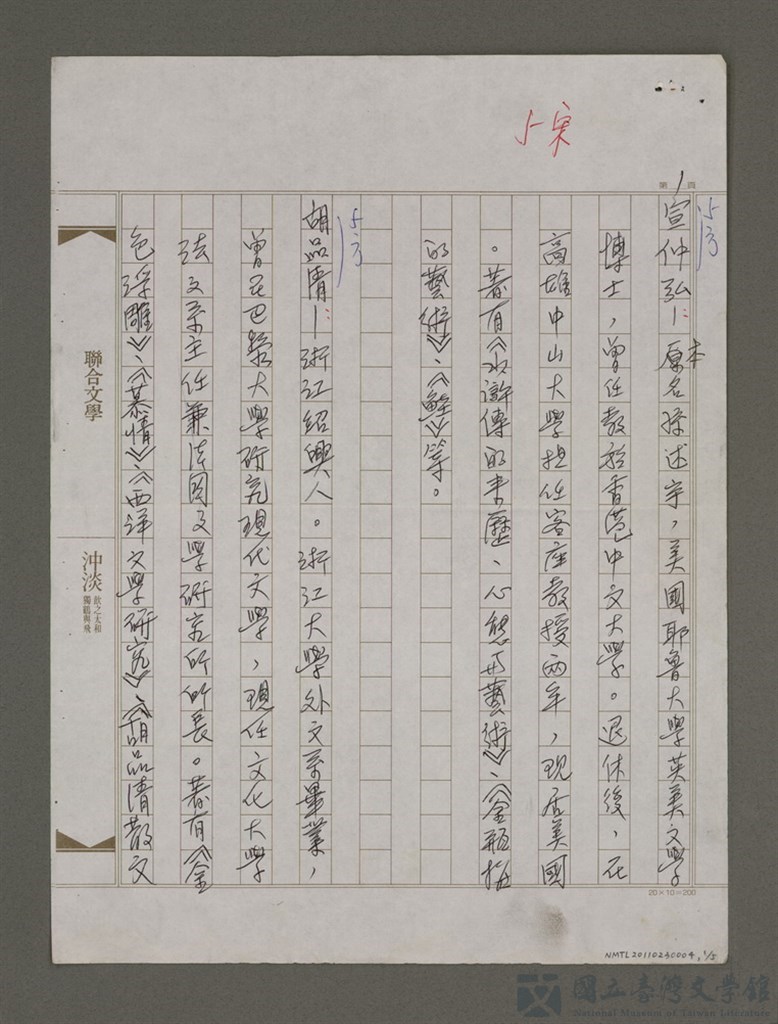 小宋
第1頁
小方
宣仲弘—:原本名孫述宇,美國耶魯大學英美文學
博士,曾任教於香港中文大學。退休後,在
高雄中山大學担任客座教授兩年,現居美國
。著有《水滸傳的来歷、心態與藝術》、《金瓶梅
的藝術》、《鮭》等。
小方
胡品清—:浙江紹興人。浙江大學外文系畢業,
曾在巴黎大學研究現代文學,現任文化大學
法文系主任兼法國文學研究所所長。著有《金
色浮雕》、《慕情》、《西洋文學研究》、《胡品清散文
聯合文學
沖淡
飲之太和
獨鶴與飛
20×10=200
NMTL20110230004, 1/5
國立臺灣文學館
National Museum of Taiwan Literature